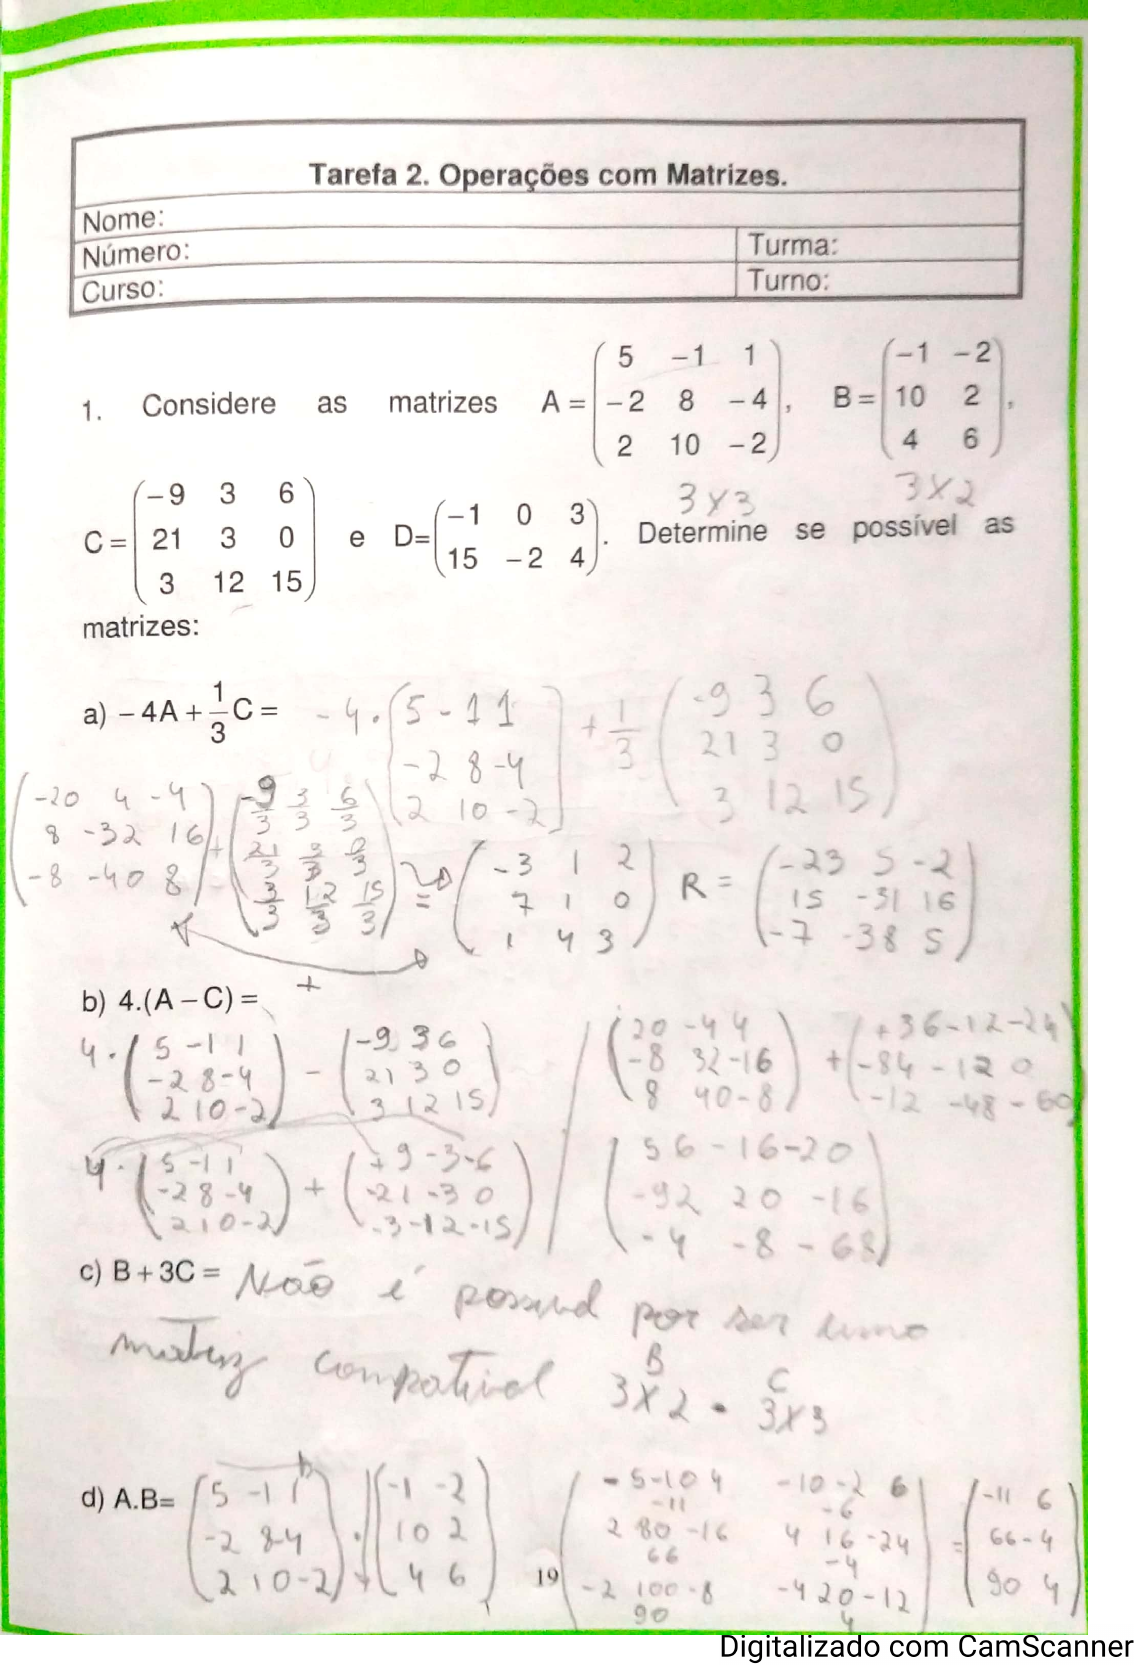 Tarefa 2. Operações com Matrizes.
Nome:
Número:
Turma:
Curso:
Turno:
1. Considere as matrizes A = ( 5 -1 1 ; -2 8 -4 ; 2 10 -2 ), B = ( -1 -2 ; 10 2 ; 4 6 ),
3x3 3x2
C = ( -9 3 6 ; 21 3 0 ; 3 12 15 ) e D= ( -1 0 3 ; 15 -2 4 ). Determine se possível as
matrizes:
a) -4A + 1/3 C = -4 . ( 5 -1 1 ; -2 8 -4 ; 2 10 -2 ) + 1/3 ( -9 3 6 ; 21 3 0 ; 3 12 15 )
( -20 4 -4 ; 8 -32 16 ; -8 -40 8 ) + ( -9/3 3/3 6/3 ; 21/3 3/3 0/3 ; 3/3 12/3 15/3 ) = ( -3 1 2 ; 7 1 0 ; 1 4 3 ) R = ( -23 5 -2 ; 15 -31 16 ; -7 -38 5 )
+
b) 4.(A - C) =
4 . ( 5 -1 1 ; -2 8 -4 ; 2 10 -2 ) - ( -9 3 6 ; 21 3 0 ; 3 12 15 )
4 . ( 5 -1 1 ; -2 8 -4 ; 2 10 -2 ) + ( +9 -3 -6 ; -21 -3 0 ; -3 -12 -15 )
( 20 -4 4 ; -8 32 -16 ; 8 40 -8 ) + ( +36 -12 -24 ; -84 -12 0 ; -12 -48 -60 )
( 56 -16 -20 ; -92 20 -16 ; -4 -8 -68 )
c) B + 3C = Não é possivel por ser uma
matriz compativel B 3x2 . C 3x3
d) A.B= ( 5 -1 1 ; -2 8 -4 ; 2 10 -2 ) . ( -1 -2 ; 10 2 ; 4 6 )
( -5 -10 4 -10 -2 6
-11 -6
2 80 -16 4 16 -24
66 -4
-2 100 -8 -4 20 -12
90 4 ) = ( -11 6 ; 66 -4 ; 90 4 )
19
Digitalizado com CamScanner